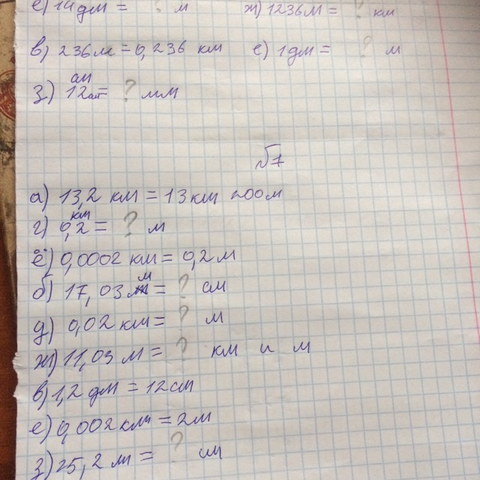 е) 1 дм = ? м ж) 1236 м = ? км
в) 236 м = 0,236 км е) 1 дм = ? м
з) 12 см = ? мм
№ 7
а) 13,2 км = 13 км 200 м
г) 0,2 км = ? м
ё) 0,0002 км = 0,2 м
б) 17,03 м = ? см
д) 0,02 км = ? м
ж) 11,03 м = ? км и м
в) 1,2 дм = 12 см
е) 0,002 км = 2 м
з) 25,2 м = ? см